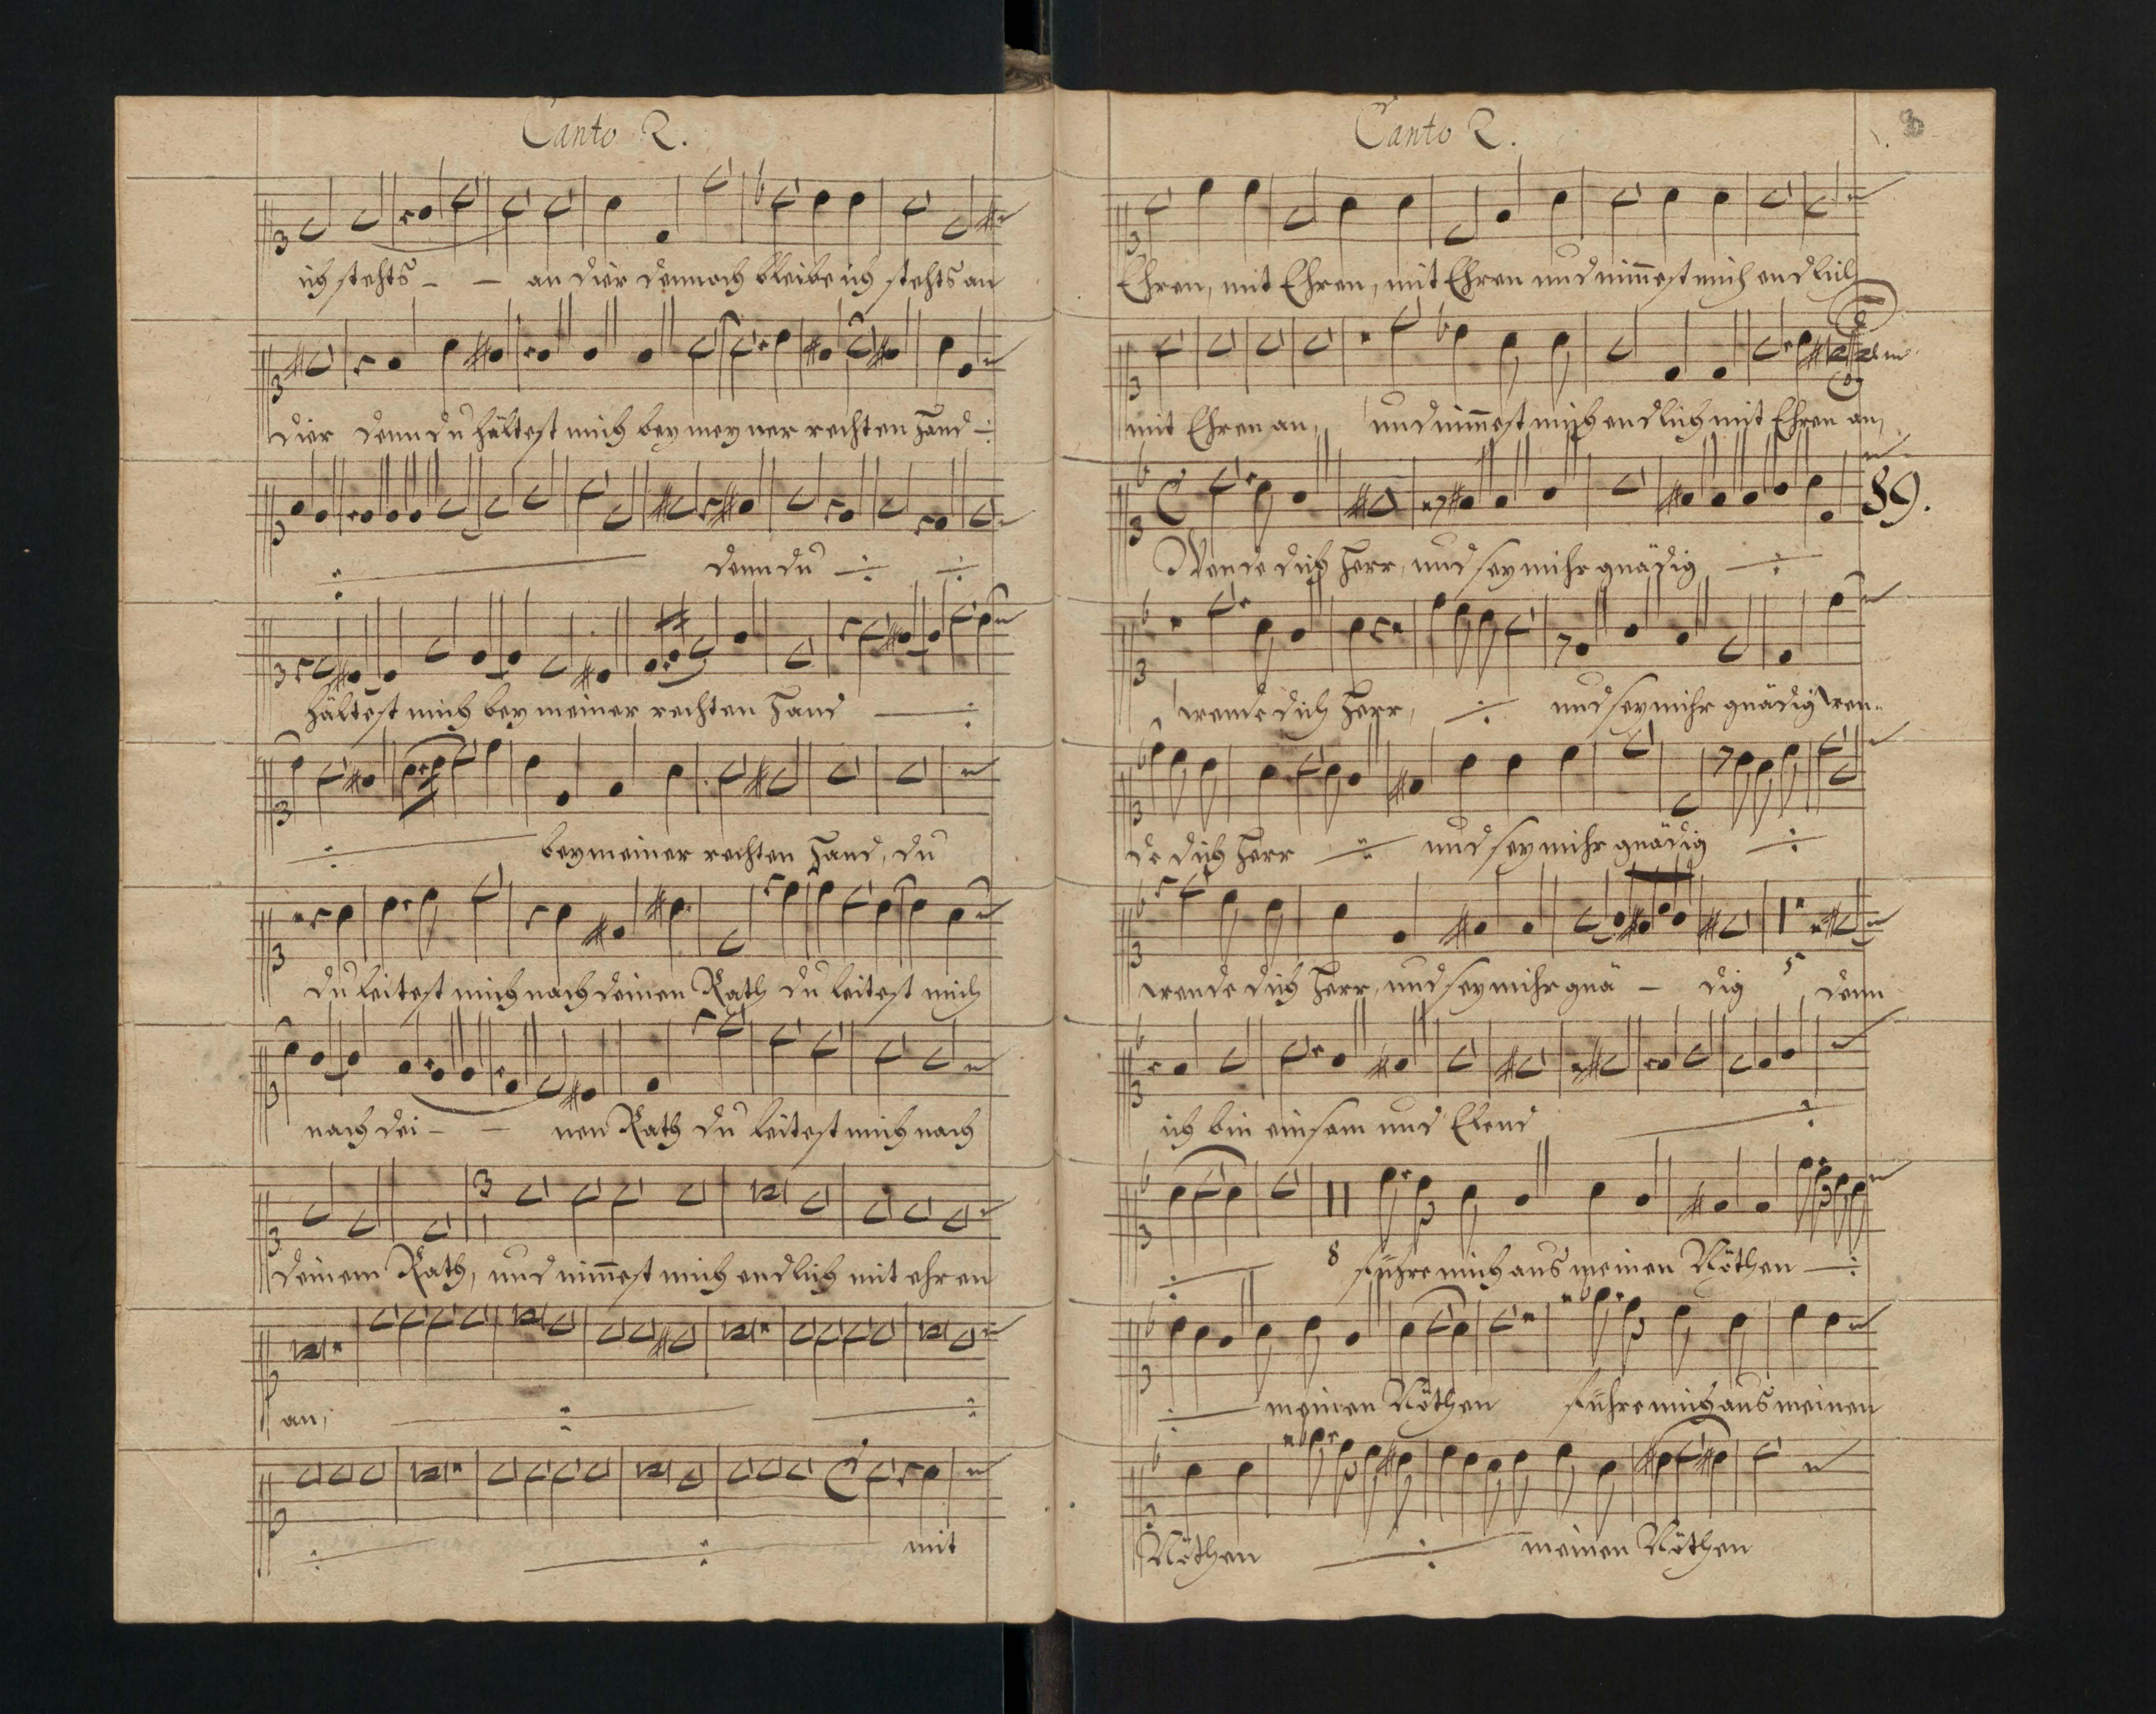 Canto 2.
ich stehts - - an dier dennoch bleibe ich stehts an
dier denn du hältest mich bey meyner rechten Hand
denn du
hältest mich bey meiner rechten Hand
bey meiner rechten Hand, du
du leitest mich nach deinen Rath du leitest mich
nach dei - - nen Rath du leitest mich nach
3
deinem Rath, und nim̄est mich endlich mit ehren
an,
mit
Canto 2.
Ehren, mit Ehren, mit Ehren und nim̄est mich endlich
mit Ehren an, und nim̄est mich endlich mit Ehren an,
89.
Wende dich Herr, und sey mihr gnädig
wende dich Herr, und sey mihr gnädig wen-
de dich Herr und sey mihr gnädig
5
wende dich Herr, und sey mihr gnä - dig denn
ich bin einsam und Elend
8 führe mich aus meinen Nöthen
meinen Nöthen führe mich aus meinen
Nöthen meinen Nöthen